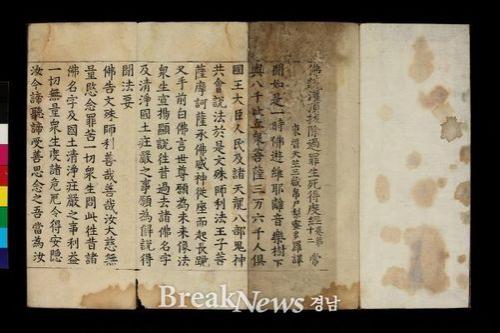 佛說灌頂拔除過罪生死得度經卷第十二 常
東晉天竺三藏帛尸梨蜜多羅譯
聞如是一時佛遊維耶離音樂樹下
與八千比丘衆菩薩三万六千人俱
國王大臣人民及諸天龍八部鬼神
共會說法於是文殊師利法王子菩
薩摩訶薩承佛威神從座而起長跪
叉手前白佛言世尊願為未來像法
衆生宣揚顯說往昔過去諸佛名字
及清淨國土莊嚴之事願為解說得
聞法要
佛告文殊師利善哉善哉汝大慈無
量愍念罪苦一切衆生問此往昔諸
佛名字及國土清淨莊嚴之事利益
一切無量衆生度諸危厄令得安隱
汝今諦聽諦受善思念之吾當為汝
BreakNews 경남